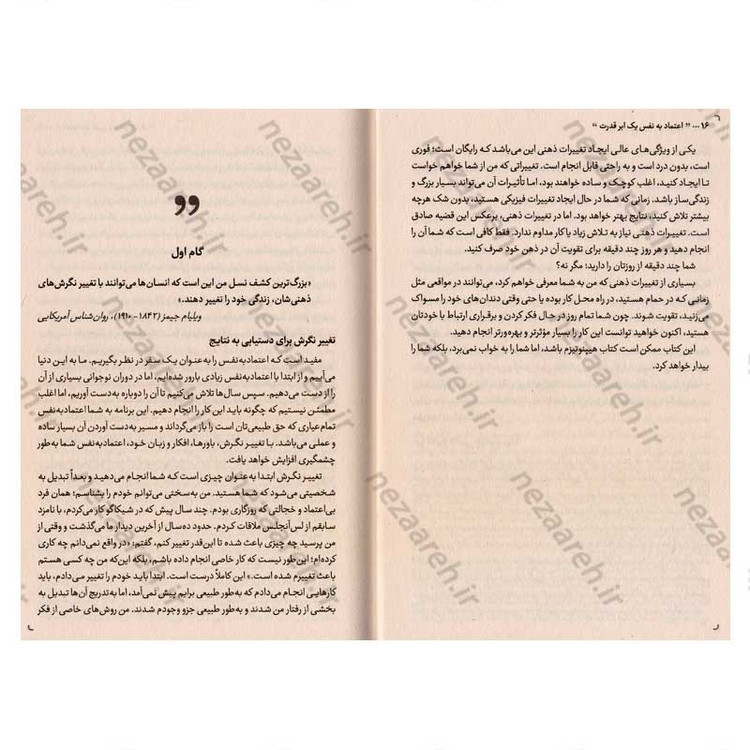 ۱۶ ... " اعتماد به نفس یک ابر قدرت "
یکی از ویژگی‌های عالی ایجاد تغییرات ذهنی این می‌باشد که رایگان است؛ فوری
است، بدون درد است و به راحتی قابل انجام است. تغییراتی که من از شما خواهم خواست
تا ایجاد کنید، اغلب کوچک و ساده خواهند بود، اما تأثیرات آن می‌تواند بسیار بزرگ و
زندگی‌ساز باشد. زمانی که شما در حال ایجاد تغییرات فیزیکی هستید، بدون شک هرچه
بیشتر تلاش کنید، نتایج بهتر خواهد بود. اما در تغییرات ذهنی، برعکس این قضیه صادق
است. تغییرات ذهنی نیاز به تلاش زیاد یا کار مداوم ندارد. فقط کافی است که شما آن را
انجام دهید و هر روز چند دقیقه برای تقویت آن در ذهن خود صرف کنید.
شما چند دقیقه از روزتان را دارید؛ مگر نه؟
بسیاری از تغییرات ذهنی که من به شما معرفی خواهم کرد، می‌توانند در مواقعی مثل
زمانی که در حمام هستید، در راه محل کار بوده یا حتی وقتی دندان‌های خود را مسواک
می‌زنید، تقویت شوند. چون شما تمام روز در حال فکر کردن و برقراری ارتباط با خودتان
هستید، اکنون خواهید توانست این کار را بسیار مؤثرتر و بهره‌ورتر انجام دهید.
این کتاب ممکن است کتاب هیپنوتیزم باشد، اما شما را به خواب نمی‌برد، بلکه شما را
بیدار خواهد کرد.
گام اول
«بزرگ‌ترین کشف نسل من این است که انسان‌ها می‌توانند با تغییر نگرش‌های
ذهنی‌شان، زندگی خود را تغییر دهند.»
ویلیام جیمز (۱۸۴۲ – ۱۹۱۰)، روان‌شناس آمریکایی
تغییر نگرش برای دستیابی به نتایج
مفید است که اعتمادبه‌نفس را به‌عنوان یک سفر در نظر بگیریم. ما به این دنیا
می‌آییم و از ابتدا با اعتمادبه‌نفس زیادی بارور شده‌ایم، اما در دوران نوجوانی بسیاری از آن
را از دست می‌دهیم. سپس سال‌ها تلاش می‌کنیم تا آن را دوباره به‌دست آوریم، اما اغلب
مطمئن نیستیم که چگونه باید این کار را انجام دهیم. این برنامه به شما اعتمادبه‌نفس
تمام‌عیاری که حق طبیعی‌تان است را باز می‌گرداند و مسیر به‌دست آوردن آن بسیار ساده
و عملی می‌باشد. با تغییر نگرش، باورها، افکار و زبان خود، اعتمادبه‌نفس شما به‌طور
چشمگیری افزایش خواهد یافت.
تغییر نگرش ابتدا به‌عنوان چیزی است که شما انجام می‌دهید و بعداً تبدیل به
شخصیتی می‌شود که شما هستید. من به‌سختی می‌توانم خودم را بشناسم؛ همان فرد
بی‌اعتماد و خجالتی که روزگاری بودم. چند سال پیش که در شیکاگو کار می‌کردم، با نامزد
سابقم از لس‌آنجلس ملاقات کردم. حدود ده‌سال از آخرین دیدار ما می‌گذشت و وقتی از
من پرسید چه چیزی باعث شده تا این‌قدر تغییر کنم، گفتم: «در واقع نمی‌دانم چه کاری
کرده‌ام؛ این‌طور نیست که کار خاصی انجام داده باشم، بلکه این‌که من چه کسی هستم
باعث تغییرم شده است.» این کاملاً درست است. ابتدا باید خودم را تغییر می‌دادم، باید
کارهایی انجام می‌دادم که به‌طور طبیعی برایم پیش نمی‌آمد، اما به‌تدریج آن‌ها تبدیل به
بخشی از رفتار من شدند و به‌طور طبیعی جزو وجودم شدند. من روش‌های خاصی از فکر
nezaareh.ir